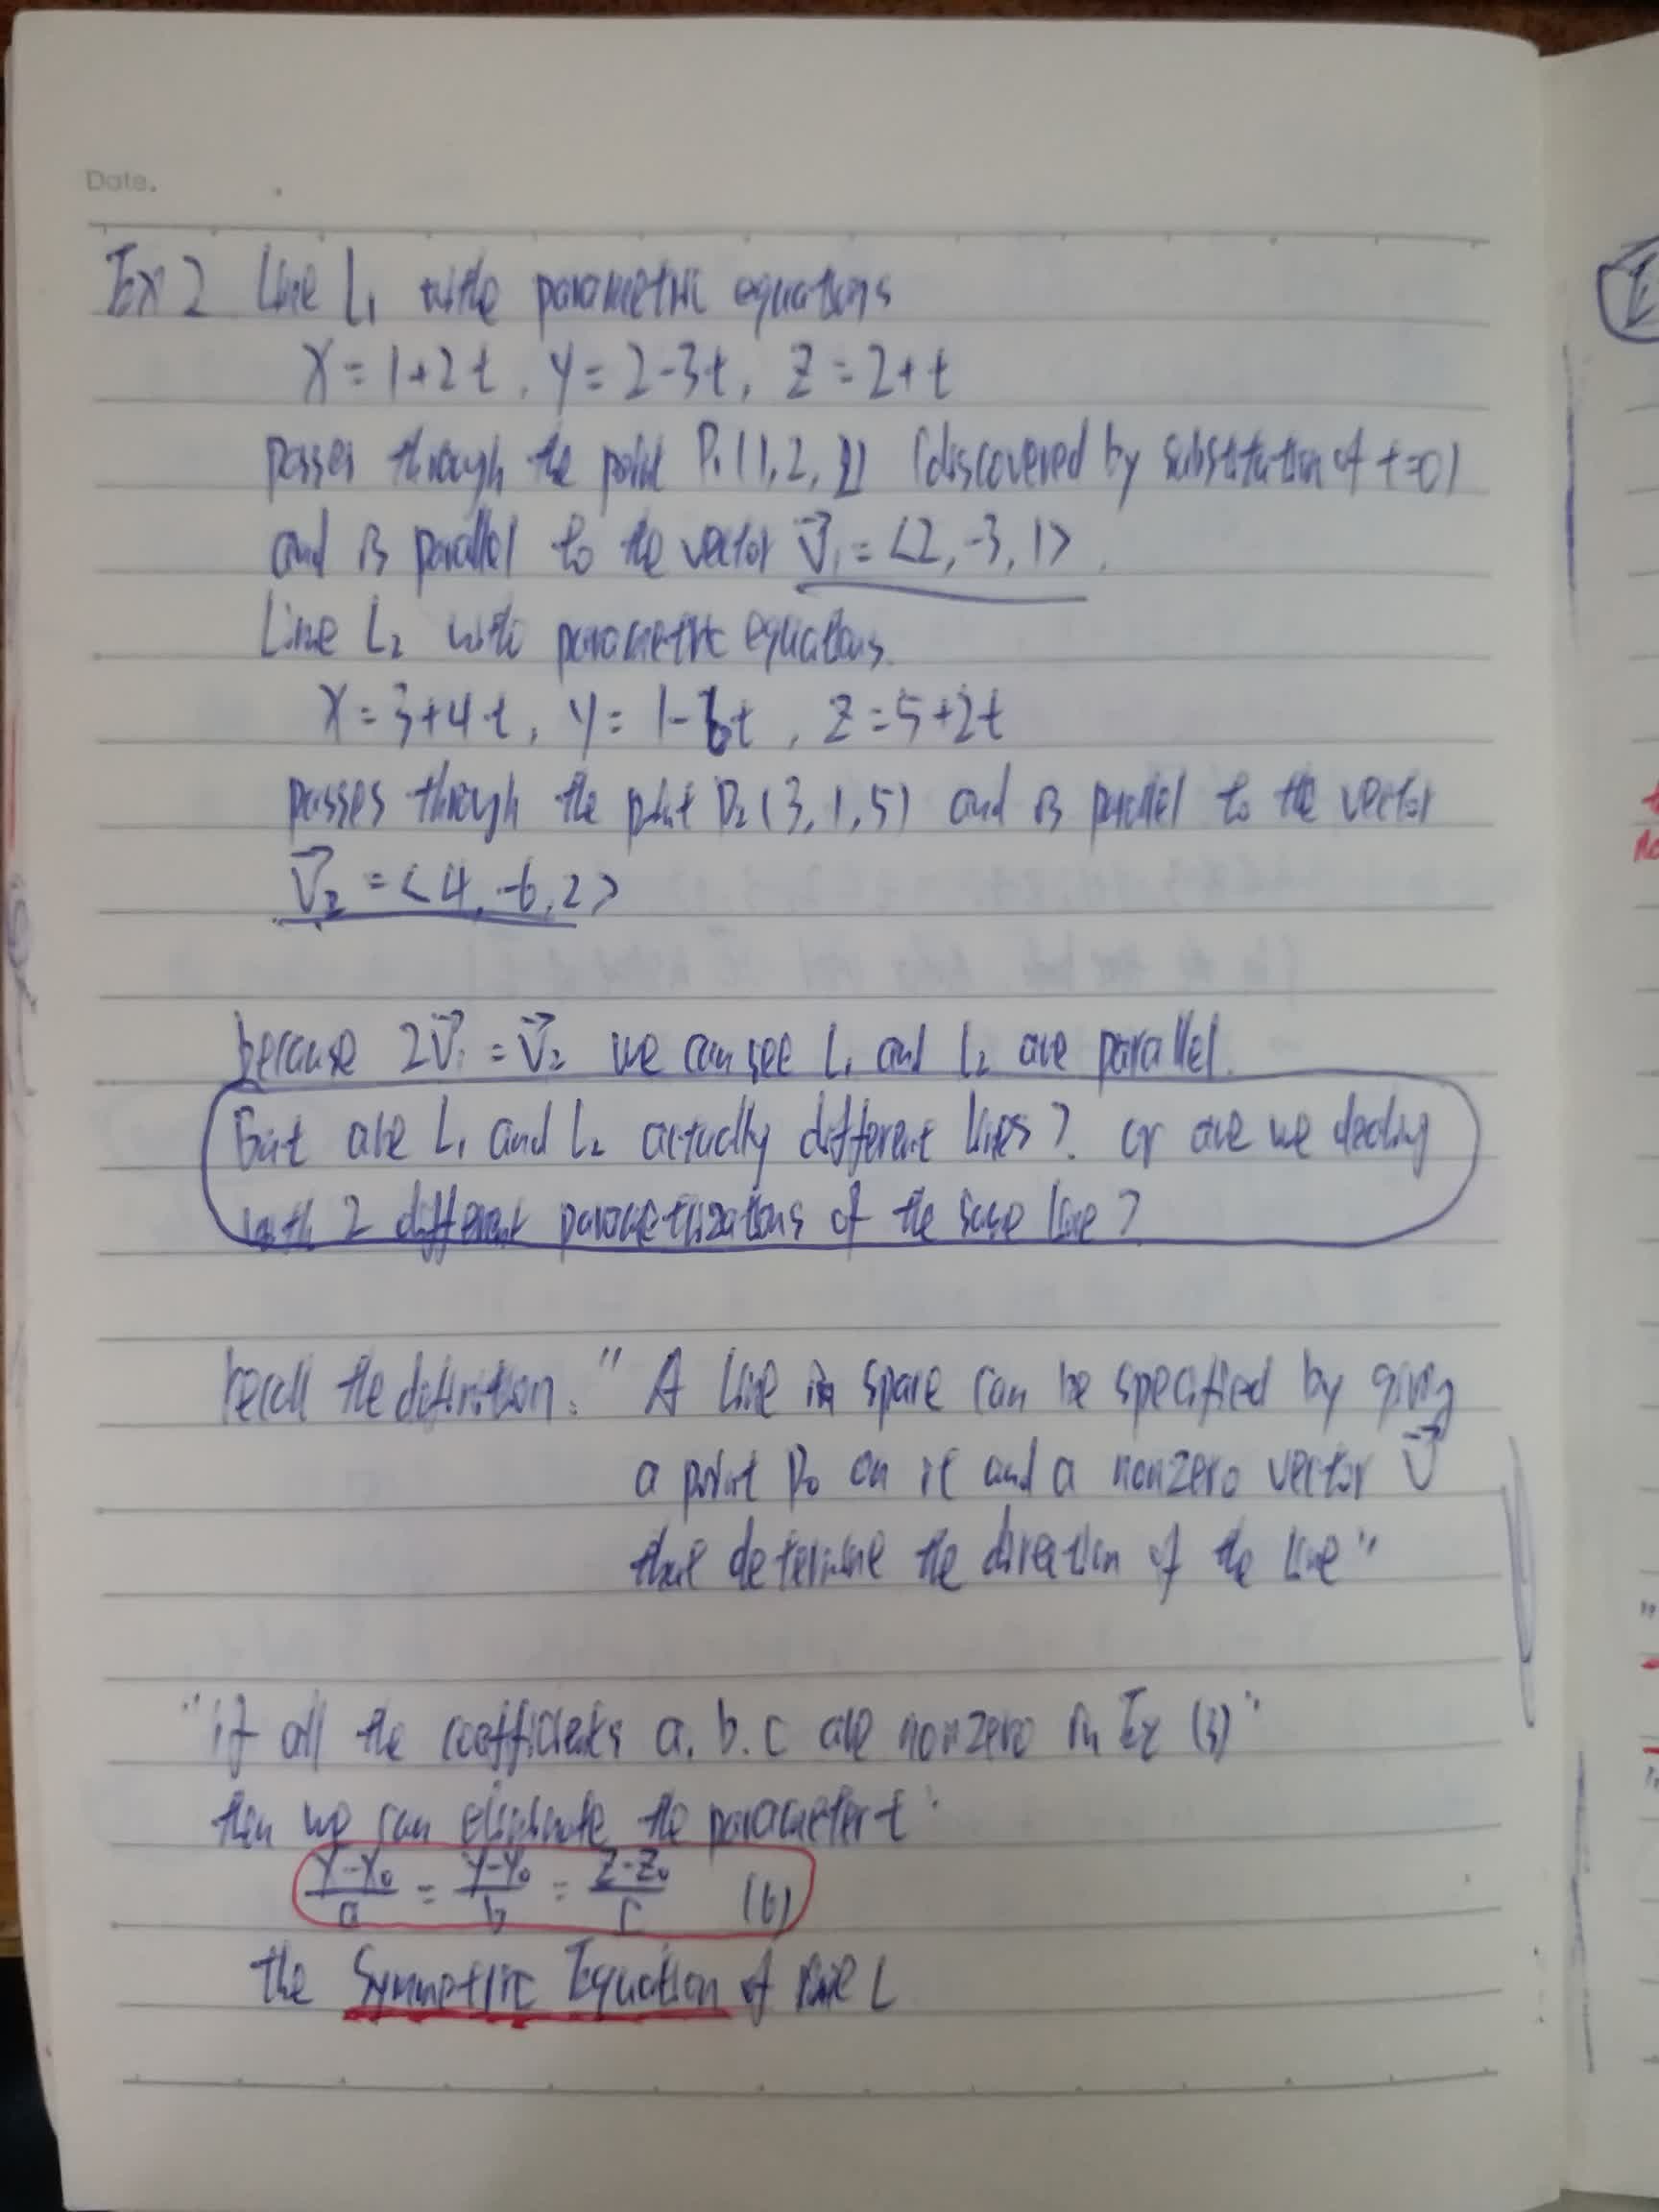 Date.
Ex 2 Line L₁ with parametric equations
X = 1+2t, y = 2-3t, Z = 2+t
passes through the point P₁(1, 2, 2) (discovered by substitution of t=0)
and is parallel to the vector v⃗₁ = <2, -3, 1>.
Line L₂ with parametric equations.
X = 3+4t, y = 1-6t, Z = 5+2t
passes through the point P₂(3, 1, 5) and is parallel to the vector
v⃗₂ = <4, -6, 2>
because 2v⃗₁ = v⃗₂ we can see L₁ and L₂ are parallel.
But are L₁ and L₂ actually different lines? or are we dealing
with 2 different parametrizations of the same line?
recall the definition: "A line in space can be specified by giving
a point P₀ on it and a nonzero vector v⃗
that determine the direction of the line"
"if all the coefficients a. b. c are nonzero in Eq (3)"
then we can eliminate the parameter t
(X-X₀)/a = (y-y₀)/b = (Z-Z₀)/c (6)
the Symmetric Equation of line L